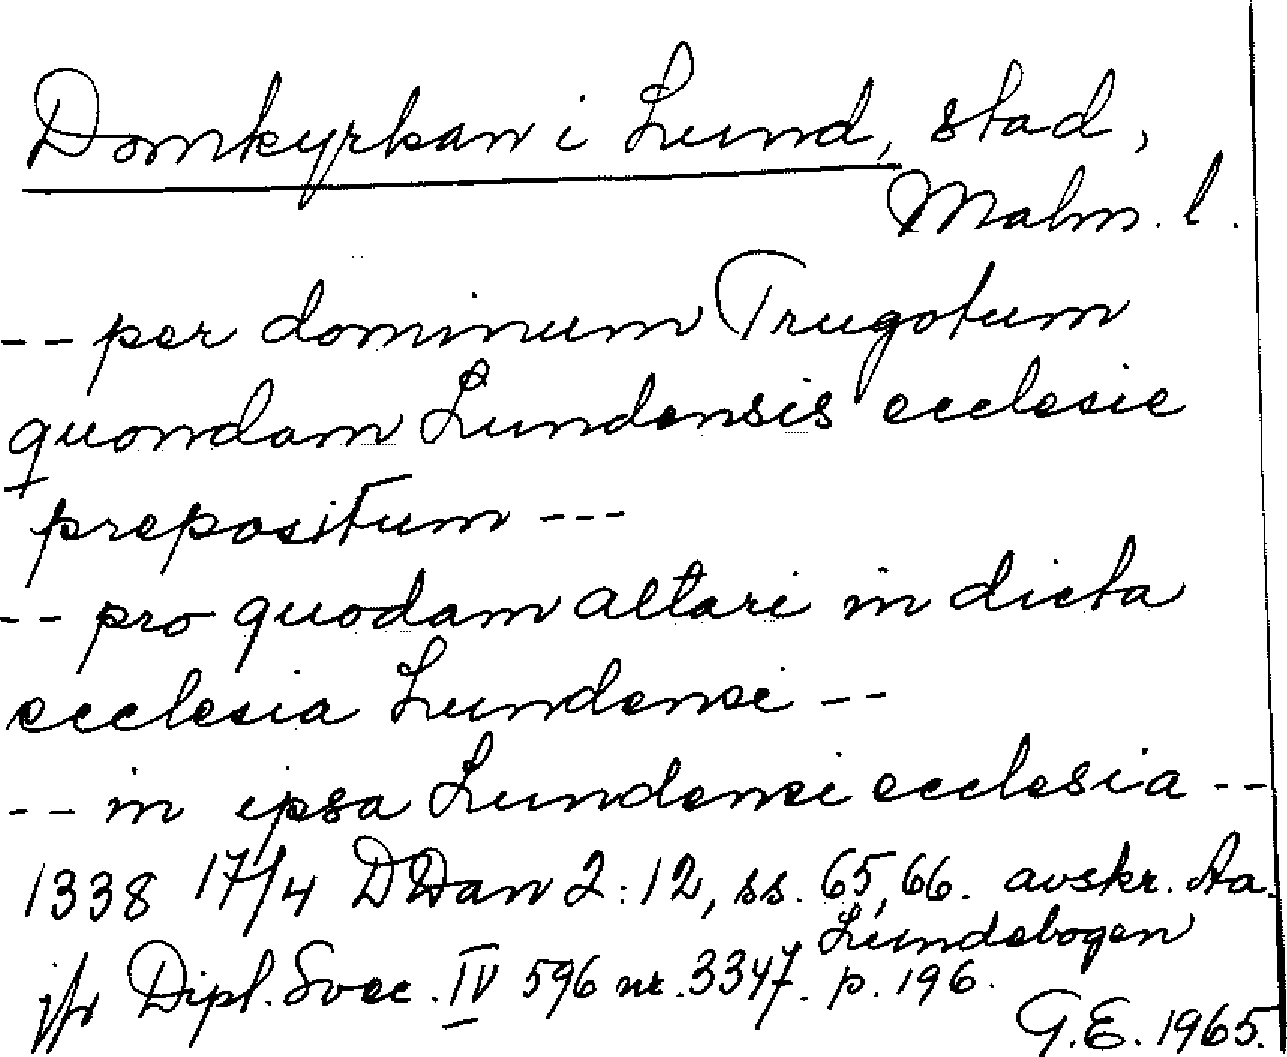 Domkyrkan i Lund, stad,
Malm. l.
-- per dominum Trugotum
quondam Lundensis ecclesie
prepositum ---
-- pro quodam altari in dicta
ecclesia Lundensi --
-- in ipsa Lundensi ecclesia --
1338 17/4 DDan 2:12, ss. 65, 66. avskr. Aa.
Lundebogen
jfr Dipl. Svec. IV 596 nr. 3347. p. 196.
G.E. 1965.